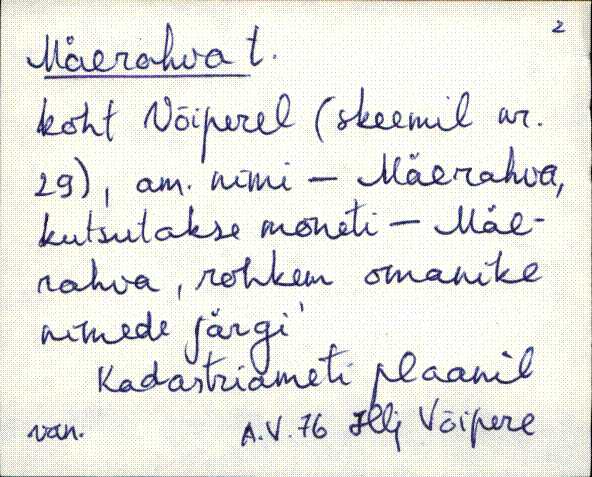 2
Mäerahva t.
koht Võiperel (skeemil nr.
29), am. nimi – Mäerahva,
kutsutakse mõneti – Mäe-
rahva, rohkem omanike
nimede järgi
Kadastriameti plaanil
van. A.V. 76 Hlj Võipere